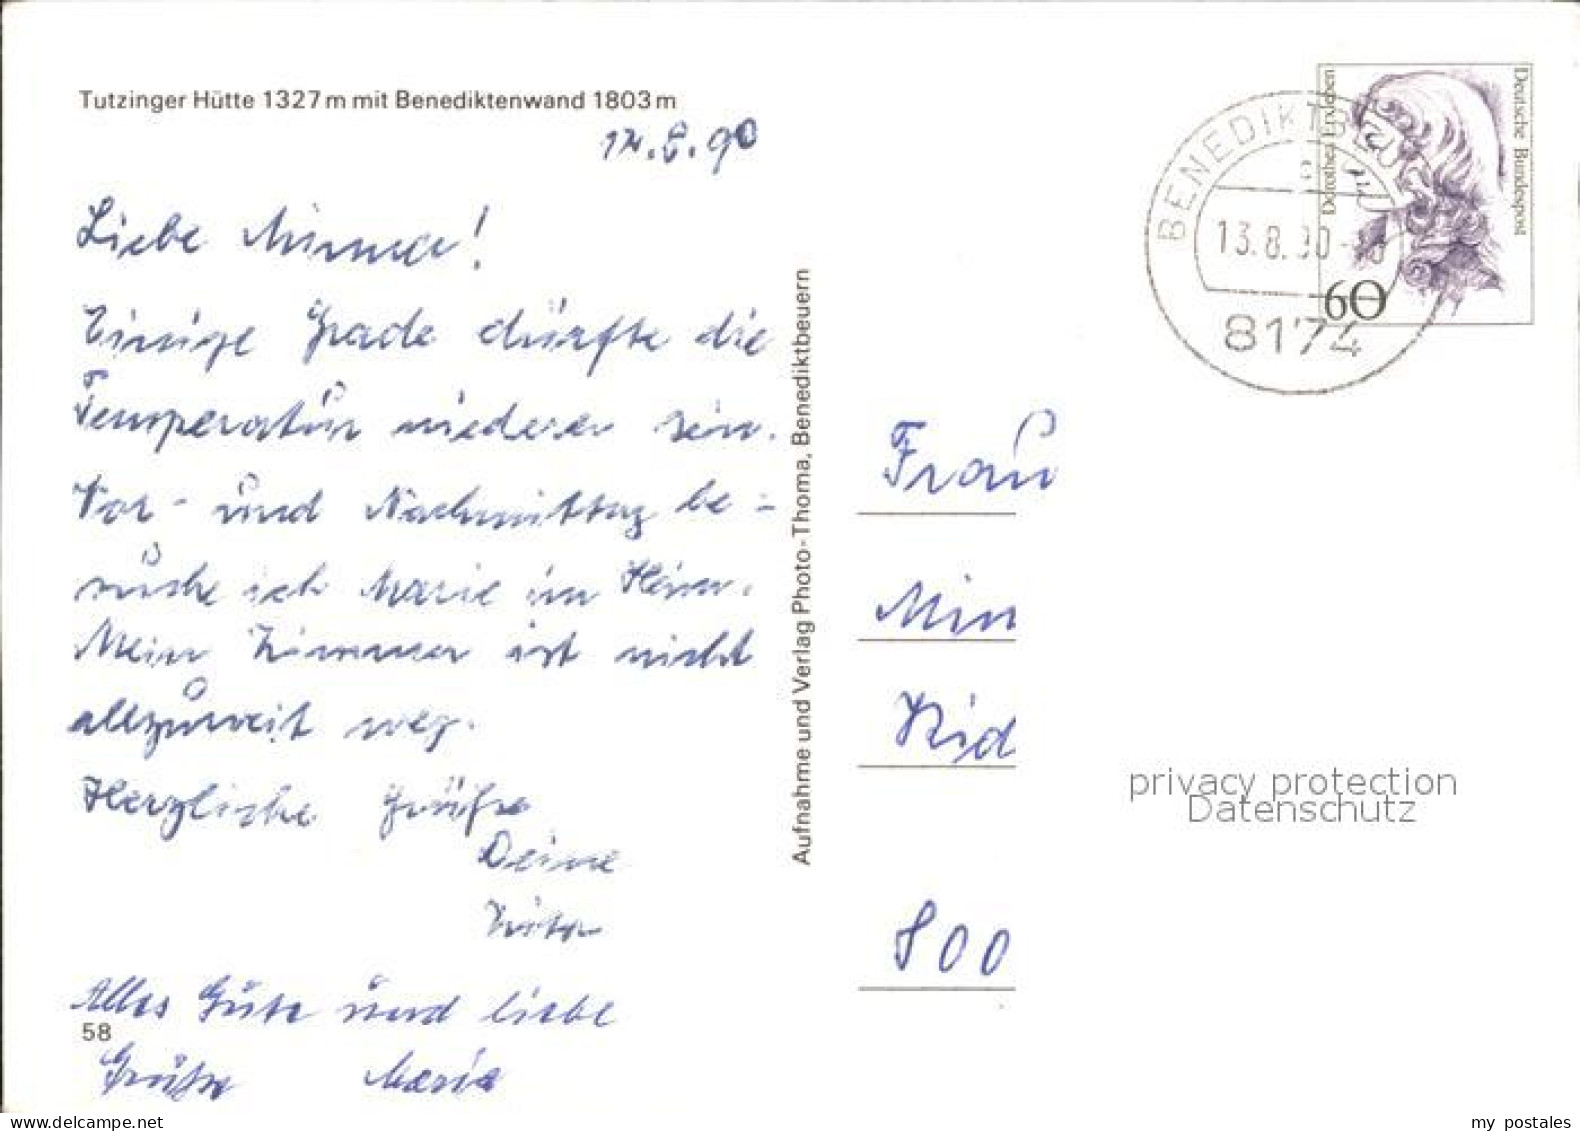 Tutzinger Hütte 1327 m mit Benediktenwand 1803 m
8.90
Liebe Minna!
Einige Grade dürfte die
Temperatur niederer sein.
Vor- und Nachmittag be-
suche ich Marie im Heim.
Mein Zimmer ist nicht
allzuweit weg.
Herzliche Grüße
Deine
Alles Gute und liebe
58
Grüße Maria
Aufnahme und Verlag Photo-Thoma, Benediktbeuern
Deutsche Bundespost
Dorothea Erxleben
60
BENEDIKTBEU
13.8.90-18
8174
Frau
Min
Rid
800
privacy protection
Datenschutz
my postales